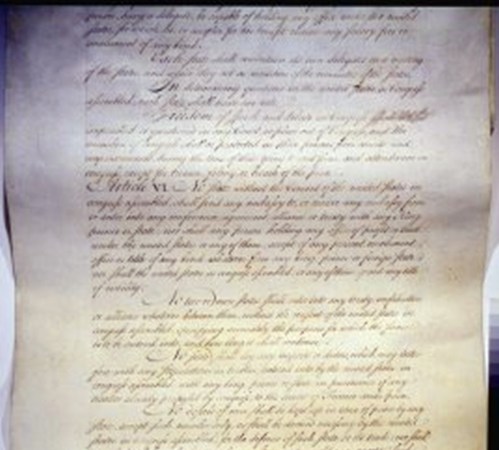 person, being a delegate, be capable of holding any office under the united
states, for which he, or another for his benefit receives any salary, fees or
emolument of any kind.
Each state shall maintain its own delegates in a meeting
of the states, and while they act as members of the committee of the states.
In determining questions in the united states in Congress
assembled, each state shall have one vote.
Freedom of speech and debate in Congress shall not be
impeached or questioned in any Court, or place out of Congress, and the
members of congress shall be protected in their persons from arrests and
imprisonments, during the time of their going to and from, and attendance on
congress, except for treason, felony, or breach of the peace.
Article VI. No state without the Consent of the united states in
congress assembled, shall send any embassy to, or receive any embassy from,
or enter into any conference, agreement, alliance or treaty with any King
prince or state; nor shall any person holding any office of profit or trust
under the united states, or any of them, accept of any present, emolument,
office or title of any kind whatever from any king, prince or foreign state;
nor shall the united states in congress assembled, or any of them, grant any title
of nobility.
No two or more states shall enter into any treaty, confederation
or alliance whatever between them, without the consent of the united states in
congress assembled, specifying accurately the purposes for which the same
is to be entered into, and how long it shall continue.
No state shall lay any imposts or duties, which may inter-
fere with any stipulations in treaties, entered into by the united states in
congress assembled, with any king, prince or state, in pursuance of any
treaties already proposed by congress, to the courts of France and
No vessels of war shall be kept up in time of peace by any
state, except such number only, as shall be deemed necessary by the united
states in congress assembled, for the defence of such state, or its trade; nor shall